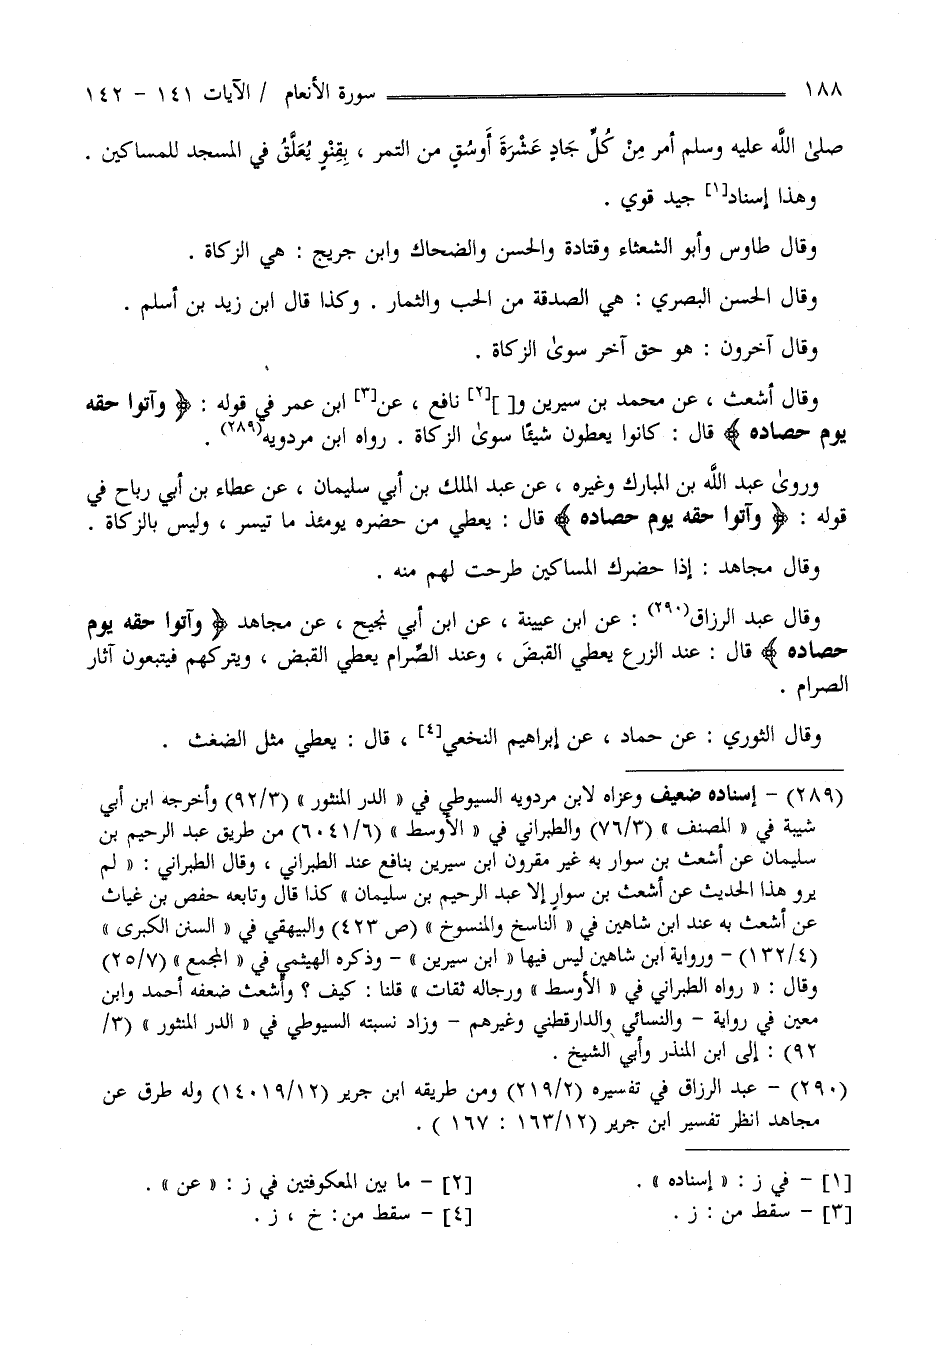 ١٨٨ سورة الأنعام / الآيات ١٤١ - ١٤٢
صلىٰ اللَّه عليه وسلم أمر مِنْ كُلِّ جَادِ عَشْرَةَ أَوسُقٍ من التمر ، بِقِنْوٍ يُعَلَّقُ في المسجد للمساكين .
وهذا إسناد[١] جيد قوي .
وقال طاوس وأبو الشعثاء وقتادة والحسن والضحاك وابن جريج : هي الزكاة .
وقال الحسن البصري : هي الصدقة من الحب والثمار . وكذا قال ابن زيد بن أسلم .
وقال آخرون : هو حق آخر سوىٰ الزكاة .
وقال أشعث ، عن محمد بن سيرين و[ ][٢] نافع ، عن[٣] ابن عمر في قوله : ﴿ وآتوا حقه
يوم حصاده ﴾ قال : كانوا يعطون شيئًا سوىٰ الزكاة . رواه ابن مردويه(٢٨٩) .
وروىٰ عبد اللَّه بن المبارك وغيره ، عن عبد الملك بن أبي سليمان ، عن عطاء بن أبي رباح في
قوله : ﴿ وآتوا حقه يوم حصاده ﴾ قال : يعطي من حضره يومئذ ما تيسر ، وليس بالزكاة .
وقال مجاهد : إذا حضرك المساكين طرحت لهم منه .
وقال عبد الرزاق(٢٩٠) : عن ابن عيينة ، عن ابن أبي نجيح ، عن مجاهد ﴿ وآتوا حقه يوم
حصاده ﴾ قال : عند الزرع يعطي القبضَ ، وعند الصِّرام يعطي القبض ، ويتركهم فيتبعون آثار
الصرام .
وقال الثوري : عن حماد ، عن إبراهيم النخعي[٤] ، قال : يعطي مثل الضغث .
(٢٨٩) - إسناده ضعيف وعزاه لابن مردويه السيوطي في « الدر المنثور » (٩٢/٣) وأخرجه ابن أبي
شيبة في « المصنف » (٧٦/٣) والطبراني في « الأوسط » (٦٠٤١/٦) من طريق عبد الرحيم بن
سليمان عن أشعث بن سوار به غير مقرون ابن سيرين بنافع عند الطبراني ، وقال الطبراني : « لم
يرو هذا الحديث عن أشعث بن سوارٍ إلا عبد الرحيم بن سليمان » كذا قال وتابعه حفص بن غياث
عن أشعث به عند ابن شاهين في « الناسخ والمنسوخ » (ص ٤٢٣) والبيهقي في « السنن الكبرى »
(١٣٢/٤) - ورواية ابن شاهين ليس فيها « ابن سيرين » - وذكره الهيثمي في « المجمع » (٢٥/٧)
وقال : « رواه الطبراني في « الأوسط » ورجاله ثقات » قلنا : كيف ؟ وأشعث ضعفه أحمد وابن
معين في رواية - والنسائي والدارقطني وغيرهم - وزاد نسبته السيوطي في « الدر المنثور » (٣/
٩٢) : إلى ابن المنذر وأبي الشيخ .
(٢٩٠) - عبد الرزاق في تفسيره (٢١٩/٢) ومن طريقه ابن جرير (١٤٠١٩/١٢) وله طرق عن
مجاهد انظر تفسير ابن جرير (١٦٣/١٢ : ١٦٧ ) .
[١] - في ز : « إسناده » . [٢] - ما بين المعكوفتين في ز : « عن » .
[٣] - سقط من : ز . [٤] - سقط من: خ ، ز .